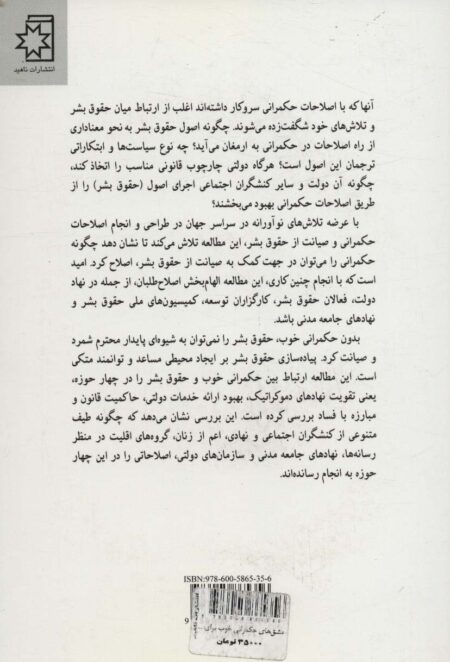 انتشارات ناهید
آنها که با اصلاحات حکمرانی سروکار داشته‌اند اغلب از ارتباط میان حقوق بشر
و تلاش‌های خود شگفت‌زده می‌شوند. چگونه اصول حقوق بشر به نحو معناداری
از راه اصلاحات در حکمرانی به ارمغان می‌آید؟ چه نوع سیاست‌ها و ابتکاراتی
ترجمان این اصول است؟ هرگاه دولتی چارچوب قانونی مناسب را اتخاذ کند،
چگونه آن دولت و سایر کنشگران اجتماعی اجرای اصول (حقوق بشر) را از
طریق اصلاحات حکمرانی بهبود می‌بخشند؟
با عرضه تلاش‌های نوآورانه در سراسر جهان در طراحی و انجام اصلاحات
حکمرانی و صیانت از حقوق بشر، این مطالعه تلاش می‌کند تا نشان دهد چگونه
حکمرانی را می‌توان در جهت کمک به صیانت از حقوق بشر، اصلاح کرد. امید
است که با انجام چنین کاری، این مطالعه الهام‌بخش اصلاح‌طلبان، از جمله در نهاد
دولت، فعالان حقوق بشر، کارگزاران توسعه، کمیسیون‌های ملی حقوق بشر و
نهادهای جامعه مدنی باشد.
بدون حکمرانی خوب، حقوق بشر را نمی‌توان به شیوه‌ای پایدار محترم شمرد
و صیانت کرد. پیاده‌سازی حقوق بشر بر ایجاد محیطی مساعد و توانمند متکی
است. این مطالعه ارتباط بین حکمرانی خوب و حقوق بشر را در چهار حوزه،
یعنی تقویت نهادهای دموکراتیک، بهبود ارائه خدمات دولتی، حاکمیت قانون و
مبارزه با فساد بررسی کرده است. این بررسی نشان می‌دهد که چگونه طیف
متنوعی از کنشگران اجتماعی و نهادی، اعم از زنان، گروه‌های اقلیت در منظر
رسانه‌ها، نهادهای جامعه مدنی و سازمان‌های دولتی، اصلاحاتی را در این چهار
حوزه به انجام رسانده‌اند.
ISBN:978-600-5865-35-6
9
مشق‌های حکمرانی خوب برای...
۳۵۰۰۰ تومان